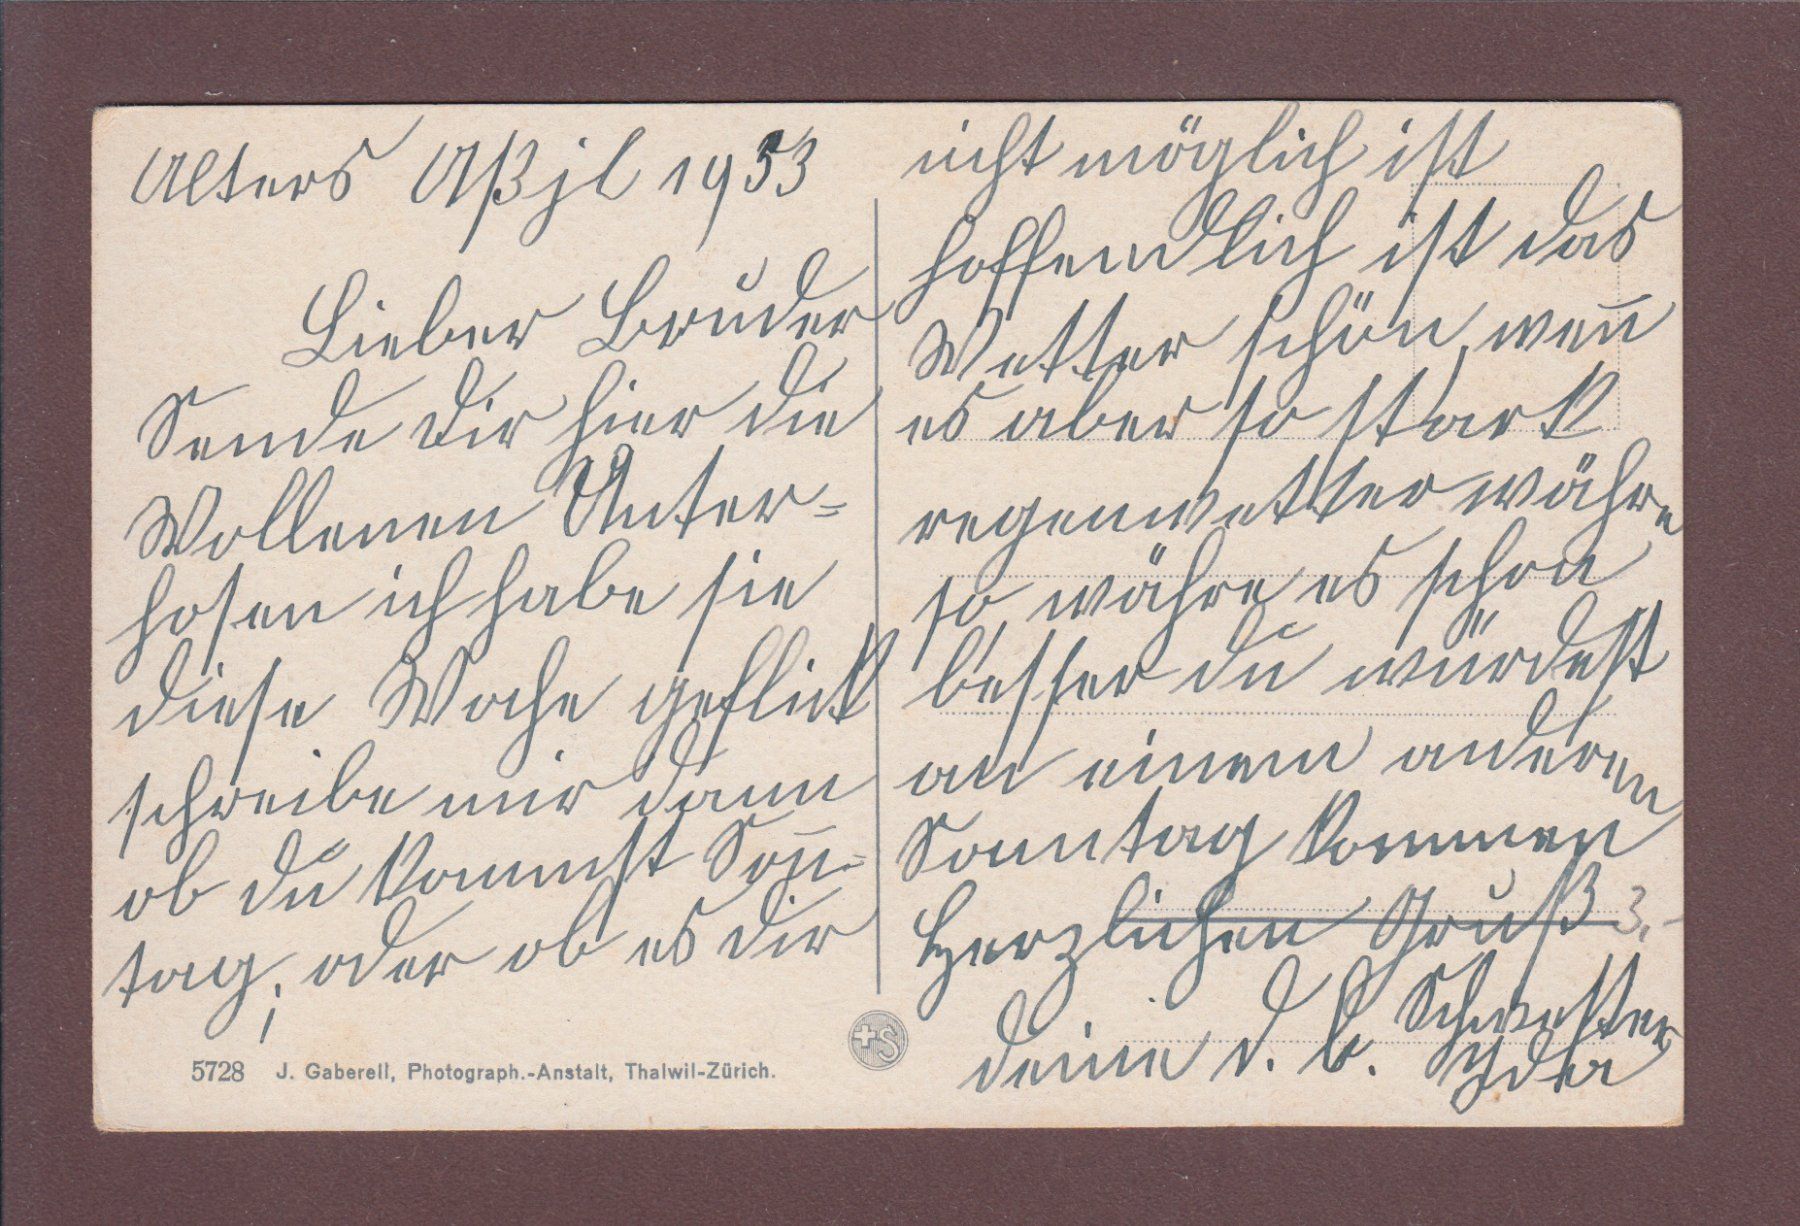 Alters Aßjl 1933
Lieber Bruder
Sende dir hier die
Wollenen Unter=
hosen ich habe sie
diese Woche geflickt
schreibe mir dann
ob du kommst Son̄=
tag; oder ob es dir
nicht möglich ist
hoffendlich ist das
Wetter schön, wen̄
es aber so stark
regenwetter währe
so, währe es schon
besser du würdest
an einem anderen
Sonntag kommen
Herzlichen Gruß 3.-
deine d. b. Schwester
Yda
5728 J. Gaberell, Photograph.-Anstalt, Thalwil-Zürich.
+S